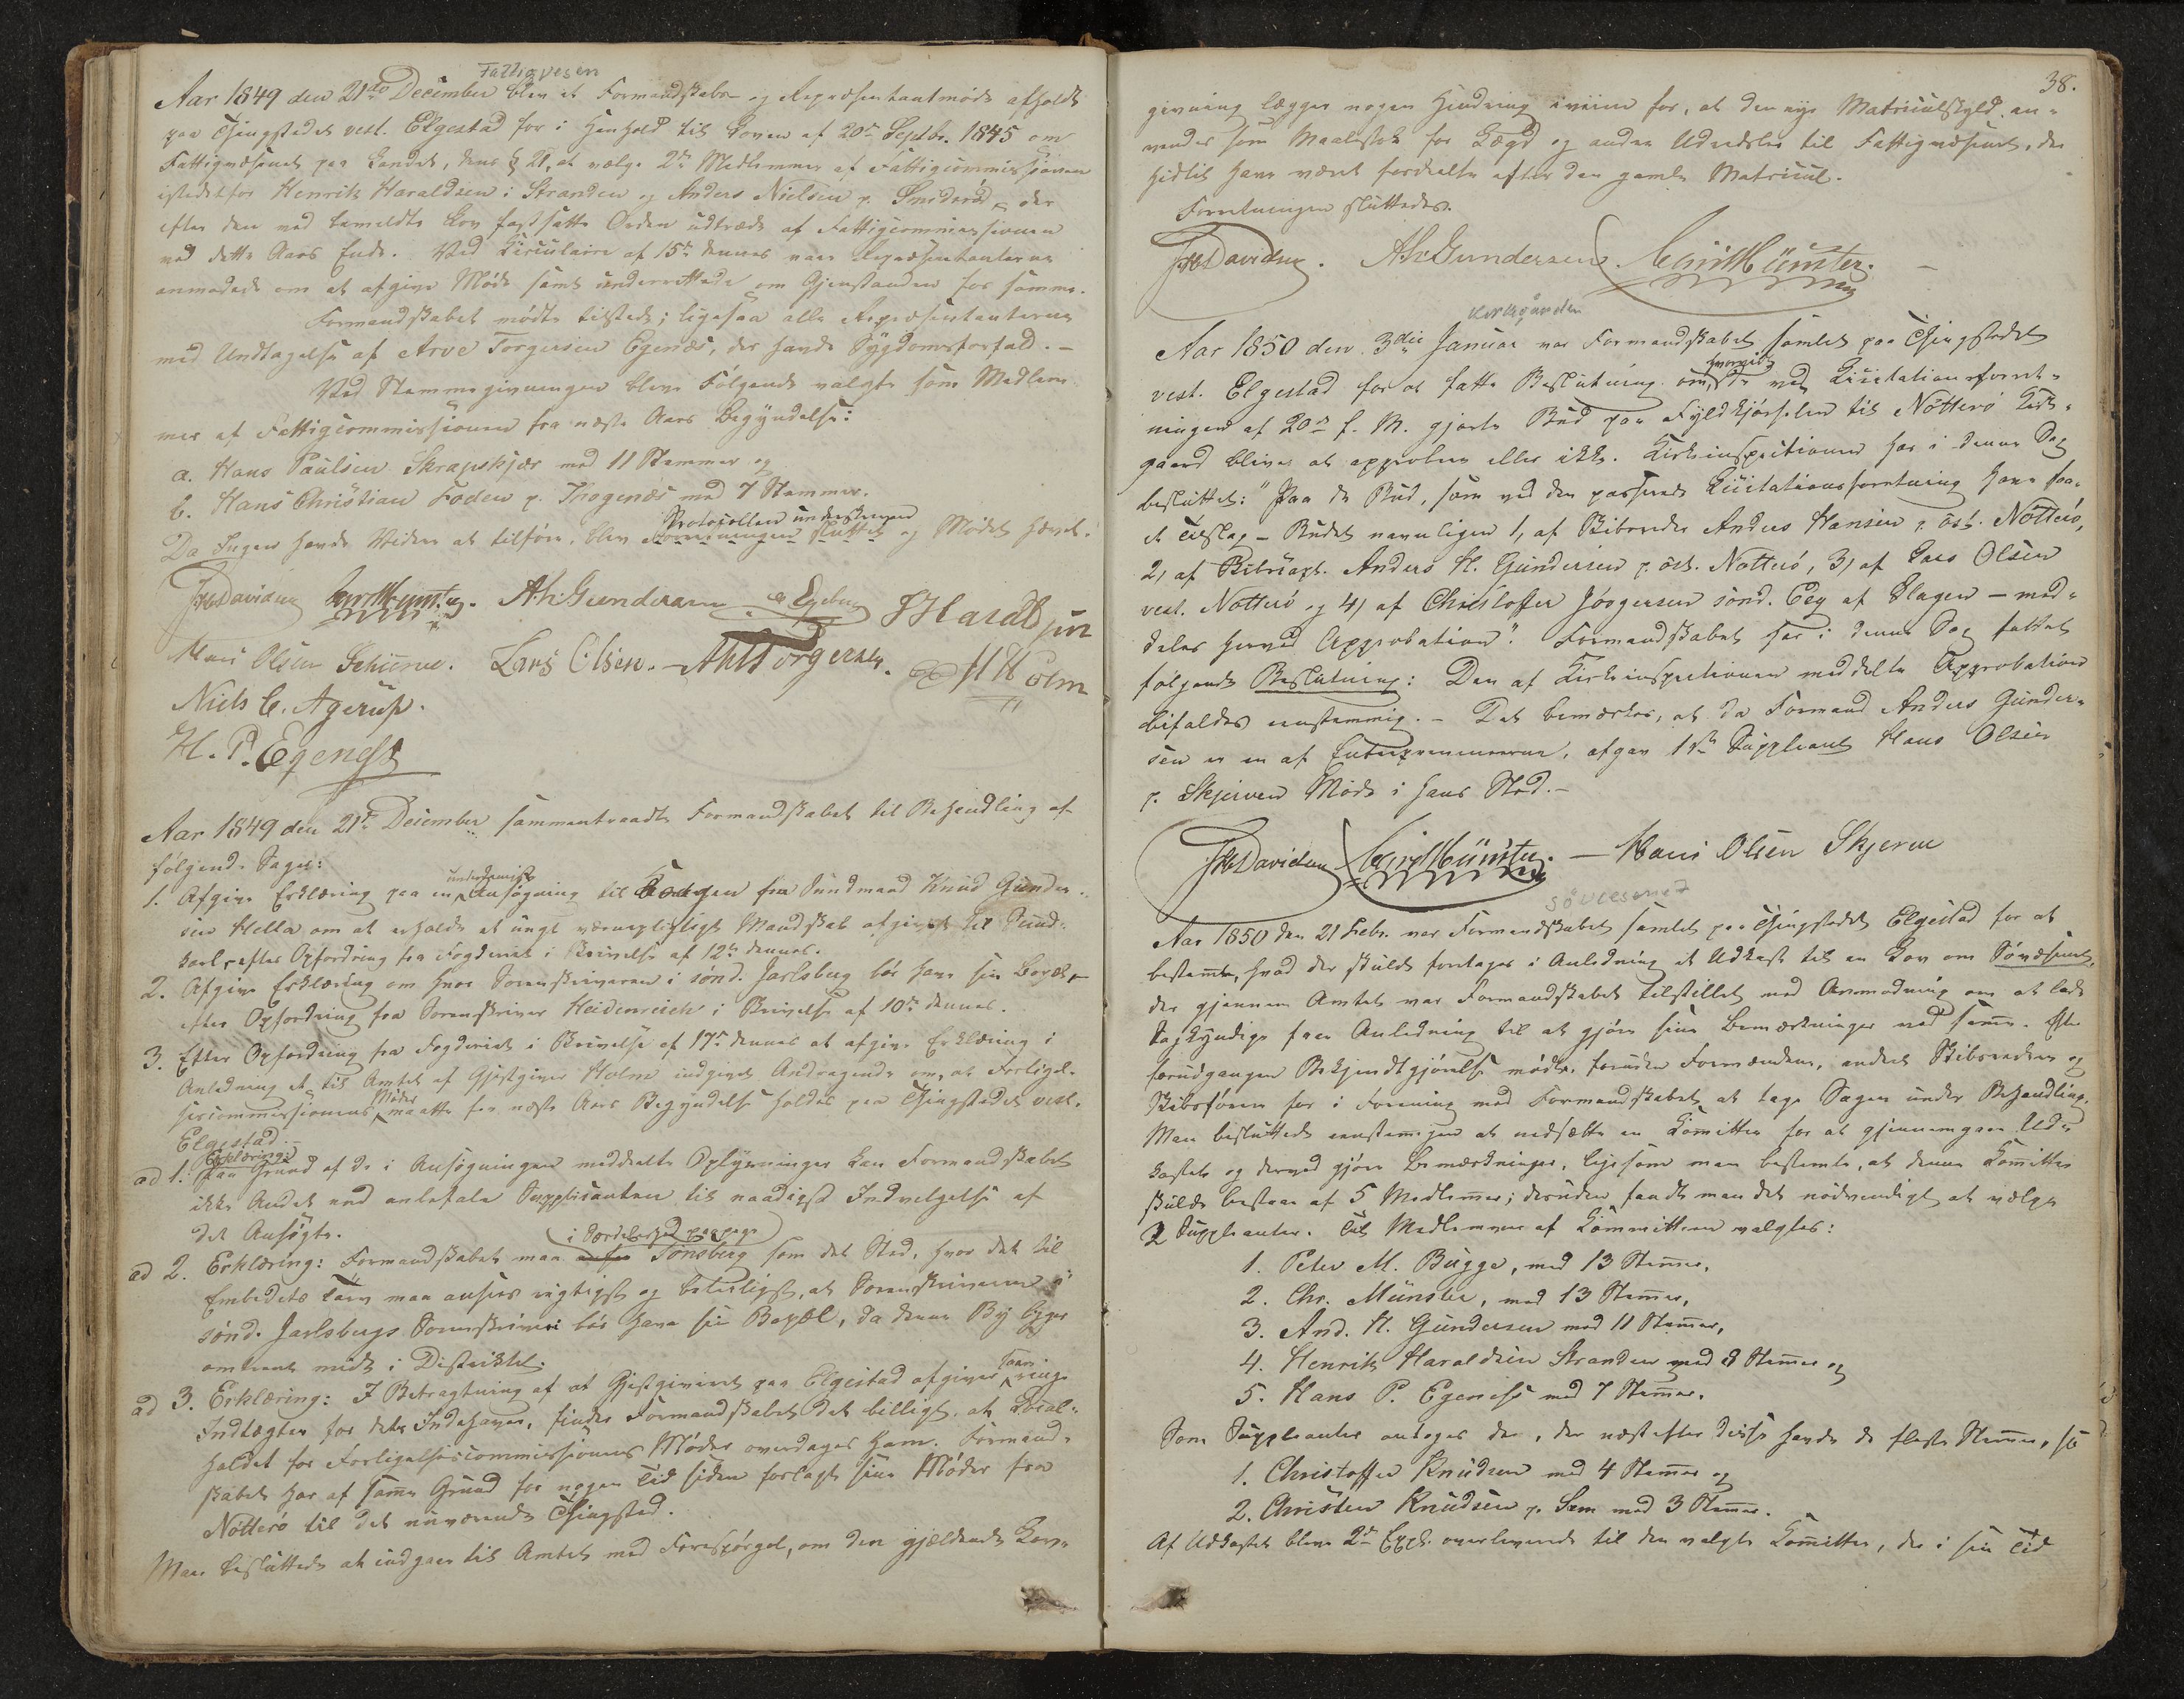 Fattigvesen
Aar 1849 den 21de December blev et Formandskabs- og Repræsentantmøde afholdt
paa Thingstedet vest. Elgestad for i Henhold til Loven af 20de Septbr. 1845 om
Fattigvæsenet paa Landet, dens § 21, at vælge 2de Medlemmer af Fattigcommissionen
istedetfor Henrik Haraldsen i Stranden og Anders Nielsen p. Smiderød, der
efter den ved bemeldte Lov fastsatte Orden udtræde af Fattigcommissionen
ved dette Aars Ende. Ved Circulaire af 15de dennes vare Repræsentanterne
anmodede om at afgive Møde samt underrettede om Gjenstanden for samme.
Formandskabet mødte tilstede; ligesaa alle Repræsentanterne
med Undtagelse af Arve Torgersen Egenæs, der havde Sygdomsforfald. –
Ved Stemmegivningen bleve Følgende valgte som Medlem-
mer af Fattigcommissionen fra næste Aars Begyndelse:
a. Hans Paulsen Skrapskjær med 11 Stemmer og
b. Hans Christian Foden p. Thogenæs med 7 Stemmer.
Protocollen underskreven
Da Ingen havde Videre at tilføre, blev Forretningen sluttet og Mødet hævet.
Davidsen Münster. A. H. Gundersen
Hans Olsen Schierve. Lars Olsen. – Torgersen. H Holm
Niels C. Agerup.
H. P. Egeness
Aar 1849 den 21de December sammentraadte Formandskabet til Behandling af
følgende Sager:
underdanigst
1. Afgive Erklæring paa en Ansøgning til Kongen fra Sundmand Knud Gunder-
sen Hella om at erholde et ungt værnepligtigt Mandskab afgivet til Sund-
karl, efter Opfordring fra Fogderiet i Skrivelse af 12te dennes.
2. Afgive Erklæring om hvor Sorenskriveren i sønd. Jarlsberg bør have sin Bopæl,
efter Opfordring fra Sorenskriver Heidenreich i Skrivelse af 10de dennes.
3. Efter Opfordring fra Fogderiet i Skrivelse af 17de dennes at afgive Erklæring i
Anledning et til Amtet af Gjæstgiver Holm indgivet Andragende om, at Forligel-
Møder
sescommissionens maatte fra næste Aars Begyndelse holdes paa Thingstedet vest.
Elgestad. –
Erklæring:
ad 1. Paa Grund af de i Ansøgningen meddeelte Oplysninger kan Formandskabet
ikke Andet end anbefale Supplicanten til naadigst Indvilgelse af
det Ansøgte.
i Særdeleshed paapege
ad 2. Erklæring: Formandskabet maa Tønsberg som det Sted, hvor det til
Embedets Tarv maa ansees vigtigst og beleiligst, at Sorenskriveren i
sønd. Jarlsbergs Sorenskriveri bør have sin Bopæl, da denne By ligger
omtrent midt i Distriktet.
saa
ad 3. Erklæring: I Betragtning af at Gjæstgiveriet paa Elgestad afgiver ringe
Indtægter for dets Indehaver, finder Formandskabet det billigt, at Local-
holdet for Forligelsescommissionens Møder overdrages ham. Formand-
skabet har af samme Grund for nogen Tid siden forlagt sine Møder fra
Nøtterø til det nuværende Thingsted.
Man besluttede at indgaae til Amtet med Forespørgsel, om den gjældende Lov-
38.
givning lægger nogen Hindring iveien for, at den nye Matriculskyld an-
vendes som Maalestok for Lægd og anden Udredsler til Fattigvæsenet, der
hidtil have været fordeelte efter den gamle Matricul.
Forretningen sluttedes.
Davidsen. A. H. Gundersen. Münster. –
Kirkegården
Aar 1850 den 3die Januar var Formandskabet samlet paa Thingstedet
hvorvidt
vest. Elgestad for at fatte Beslutning om, de ved Licitationsforret-
ningen af 20de f. M. gjorte Bud paa Fyldkjørselen til Nøtterø Kirke-
gaard bliver at approbere eller ikke. Kirkeinspectionen har i denne Dag
besluttet: "Paa de Bud, som ved den passerede Licitationsforretning have faa-
et Tilslag – Budet navnligen 1, af Skibsreder Anders Hansen p. øst. Nøtterø,
2, af Skibscapt. Anders H. Gundersen p. øst. Nøtterø, 3, af Lars Olsen
vest. Nøtterø og 4, af Christoffer Jørgensen sønd. Eeg af Slagen – med-
deles herved Approbation". Formandskabet har i denne Dag fattet
følgende Beslutning: Den af Kirkeinspectionen meddelte Approbation
bifaldes eenstemmig. – Det bemærkes, at da Formand Anders Gunder-
sen er en af Entrepreneurerne, afgav 1ste Suppleant Hans Olsen
p. Skjerven Møde i hans Sted. –
Davidsen Münster. – Hans Olsen Skjerve
Sövesenet
Aar 1850 den 21 Febr. var Formandskabet samlet paa Thingstedet Elgestad for at
bestemme, hvad der skulde foretages i Anledning et Udkast til en Lov om Søvæsenet,
der gjennem Amtet var Formandskabet tilstillet med Anmodning om at lade
Sagkyndige faae Anledning til at gjøre sine Bemærkninger ved samme. Efter
forudgangen Bekjendtgjørelse mødte, foruden Formændene, endeel Skibsredere og
Skibsførere for i Forening med Formandskabet at tage Sagen under Behandling.
Man besluttede eenstemmigen at nedsætte en Komittee for at gjennemgaae Ud-
kastet og derved gjøre Bemærkninger, ligesom man bestemte, at denne Komittee
skulde bestaae af 5 Medlemmer; desuden fandt man det nødvendigt at vælge
2 Suppleanter. Til Medlemmer af Kommitteen valgtes:
1. Peter M. Bugge, med 13 Stemmer,
2. Chr. Münster, med 13 Stemmer,
3. And. H. Gundersen med 11 Stemmer,
4. Henrik Haraldsen Stranden med 8 Stemmer og
5. Hans P. Egeness med 7 Stemmer.
Som Suppleanter antoges der, der næst efter disse havde de fleste Stemmer,
1. Christoffer Knudsen med 4 Stemmer og
2. Christen Knudsen p. Sem med 3 Stemmer.
Af Udkastet bleve 2de Expl. overleverede til den valgte Komittee, der i sin Tid